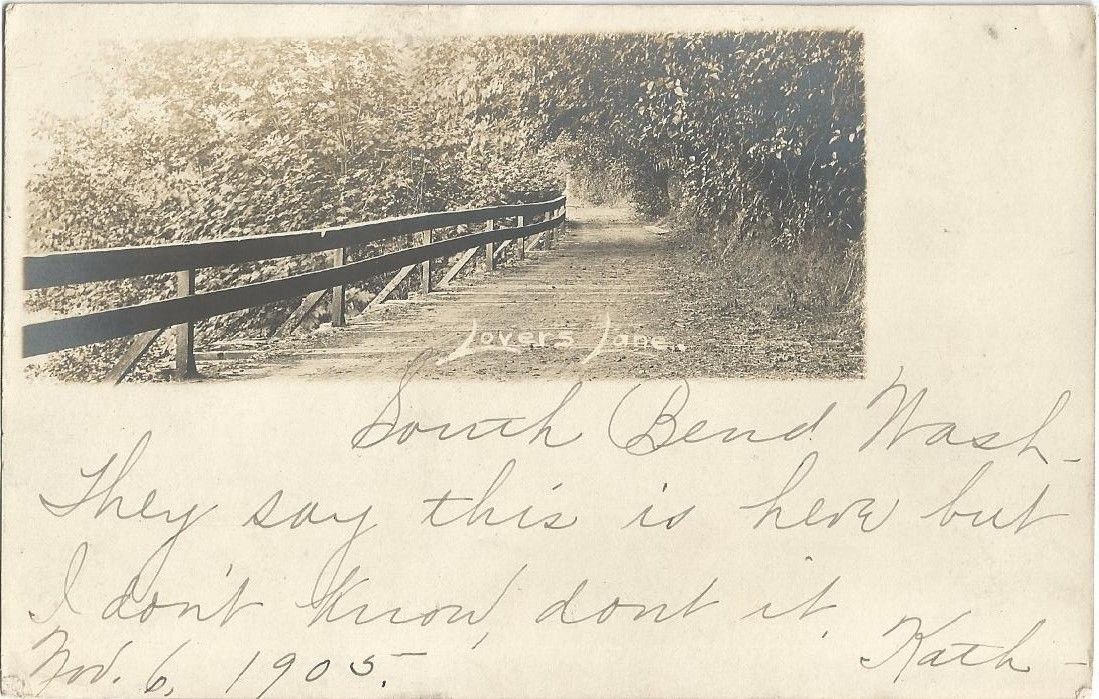 Lovers Lane.
South Bend Wash-
They say this is here but
I don't know, dont it.
Kath-
Nov. 6, 1905.